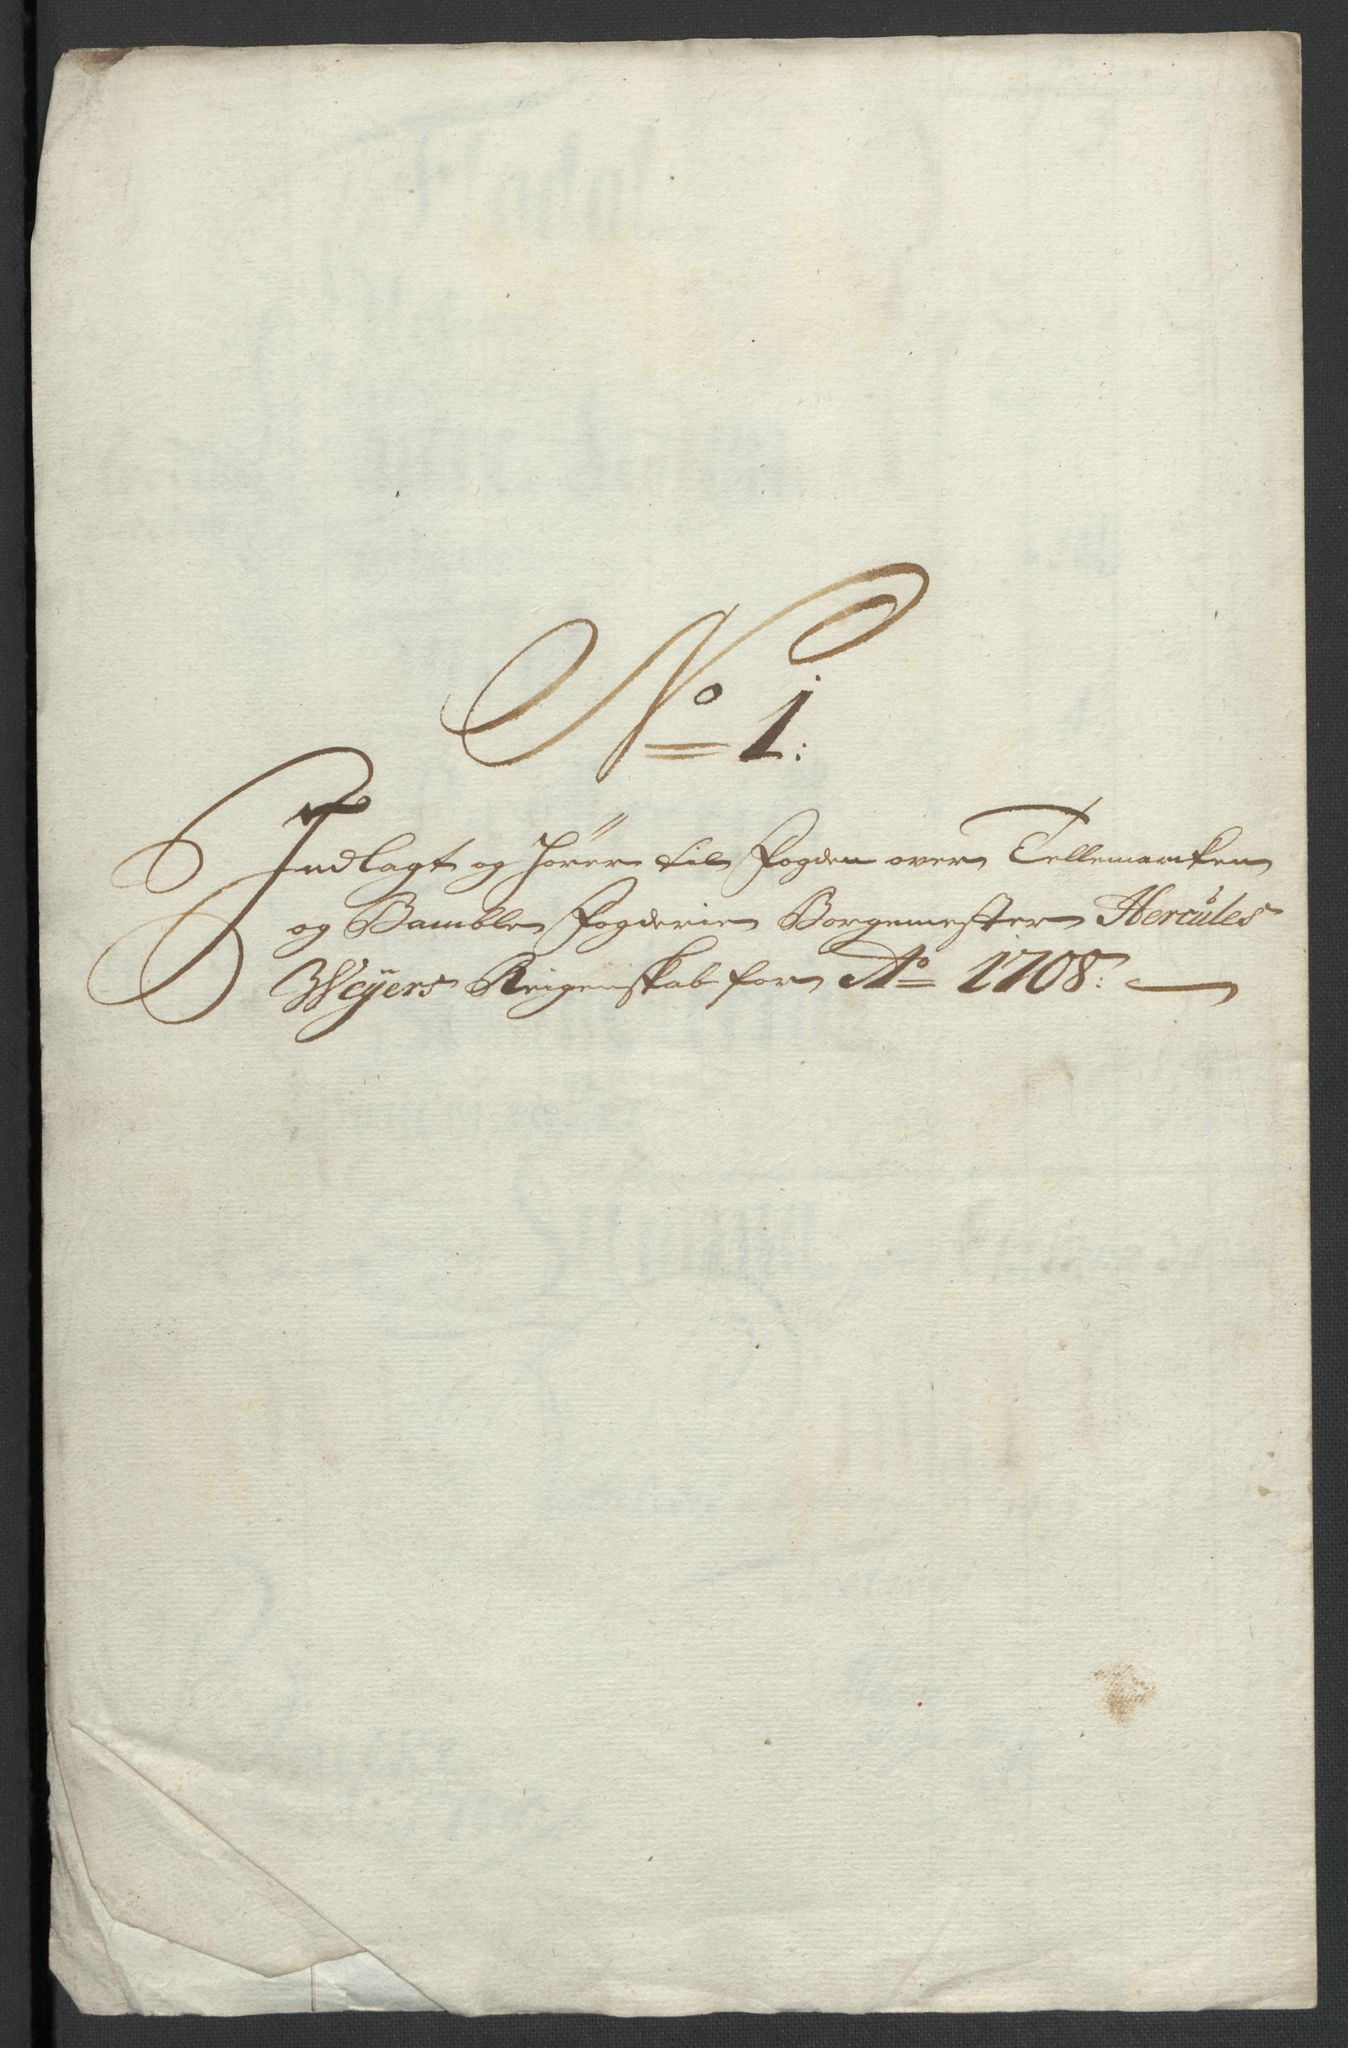 No 1:
Indlagt og hörer til Fogden over Tellemarcken
og Bamble Fogderie Borgemester Hercules
Weyers Reigenskab for Ao 1708: